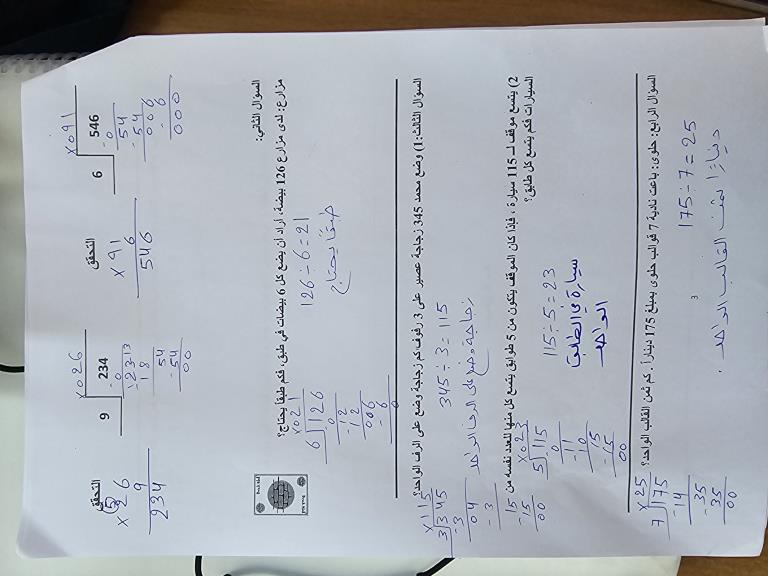 × 0 9 1
6 546
- 0
5 4
- 5 4
0 0 6
- 6
0 0 0
التحقق
× 9 1
6
5 4 6
× 0 2 6
9 234
- 0
2 3
- 1 8
5 4
- 5 4
0 0
التحقق
× 2 6
9
2 3 4
السؤال الثاني:
مزارع: لدى مزارع 126 بيضة، اراد ان يضع كل 6 بيضات في طبق، فكم طبقا يحتاج؟
126 ÷ 6 = 21
طبقا يحتاج
× 0 2 1
6 126
- 0
1 2
- 1 2
0 0 6
- 6
0
السؤال الثالث: 1) وضع محمد 345 زجاجة عصير على 3 رفوف كم زجاجة وضع على الرف الواحد؟
345 ÷ 3 = 115
زجاجة وضع على الرف الواحد
× 1 1 5
3 345
- 3
0 4
- 3
1 5
- 1 5
0 0
2) يتسع موقف لـ 115 سيارة ، فإذا كان الموقف يتكون من 5 طوابق يتسع كل منها للعدد نفسه من
السيارات فكم يتسع كل طابق؟
115 ÷ 5 = 23
سيارة في الطابق
الواحد
× 0 2 3
5 115
- 0
1 1
- 1 0
1 5
- 1 5
0 0
السؤال الرابع: حلوى: باعت نادية 7 قوالب حلوى بمبلغ 175 دينارا . كم ثمن القالب الواحد؟
175 ÷ 7 = 25
دينارا ثمن القالب الواحد .
× 2 5
7 175
- 1 4
3 5
- 3 5
0 0
3